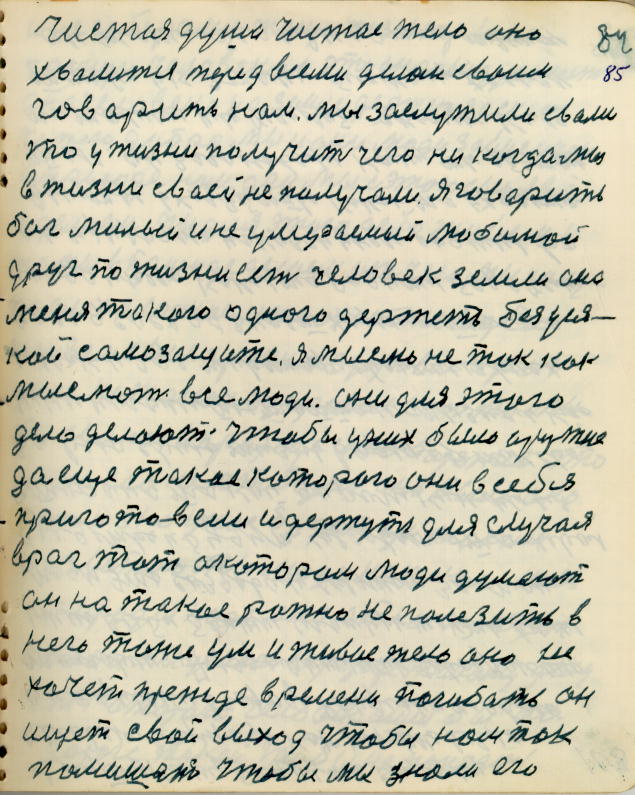 чистая душа чистае тело оно 84
хвалится перед всеми делам своим 85
говарить нам. мы заслужили свами
то у жизни получит чего ни когда мы
в жизни своей не получали. я говарить
бог милый и не умираемый любимой
друг по жизни есть человек земли она
меня такого одного держеть без уся-
кой самозащите. я мислю не так как
мислют все люди. они для этого
дело делоют чтобы у них было аружие
да еще такое которого они в себя
приготовели и держуть для случая
враг тот о котором люди думают
он на такое рожно не полезить в
него тоже ум и живое тело оно не
хочет прежде времени погибать он
ищет свой выход чтобы нам так
помишать чтобы ми знали его